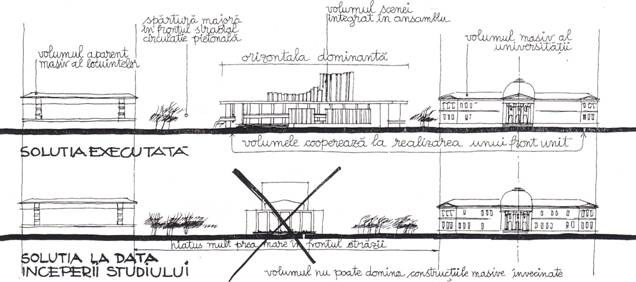 volumul aparent
masiv al locuintelor
spărtură majoră
în frontul stradal
circulatie pietonală
volumul scenei
integrat în ansamblu
orizontala dominantă
volumul masiv al
universității
volumele cooperează la realizarea unui front unit
SOLUTIA EXECUTATĂ
hiatus mult prea mare în frontul străzii
SOLUTIA LA DATA
INCEPERII STUDIULUI
volumul nu poate domina construcțiile masive învecinate